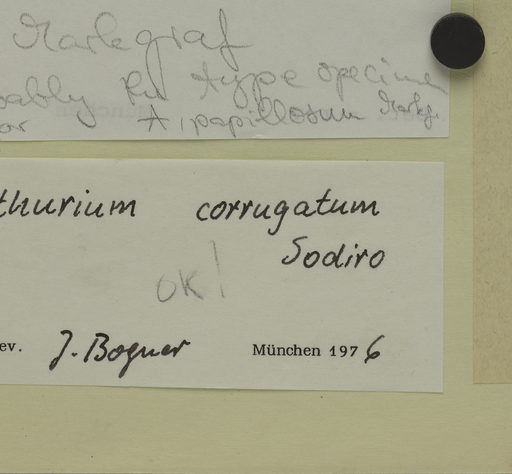 Markgraf
bably the type specimen
or A. papillosum Markg.
thurium corrugatum
Sodiro
OK!
ev. J. Bogner München 1976